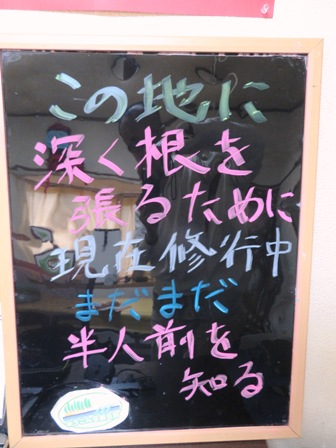 この地に
深く根を
張るために
現在修行中
まだまだ
半人前を
知る